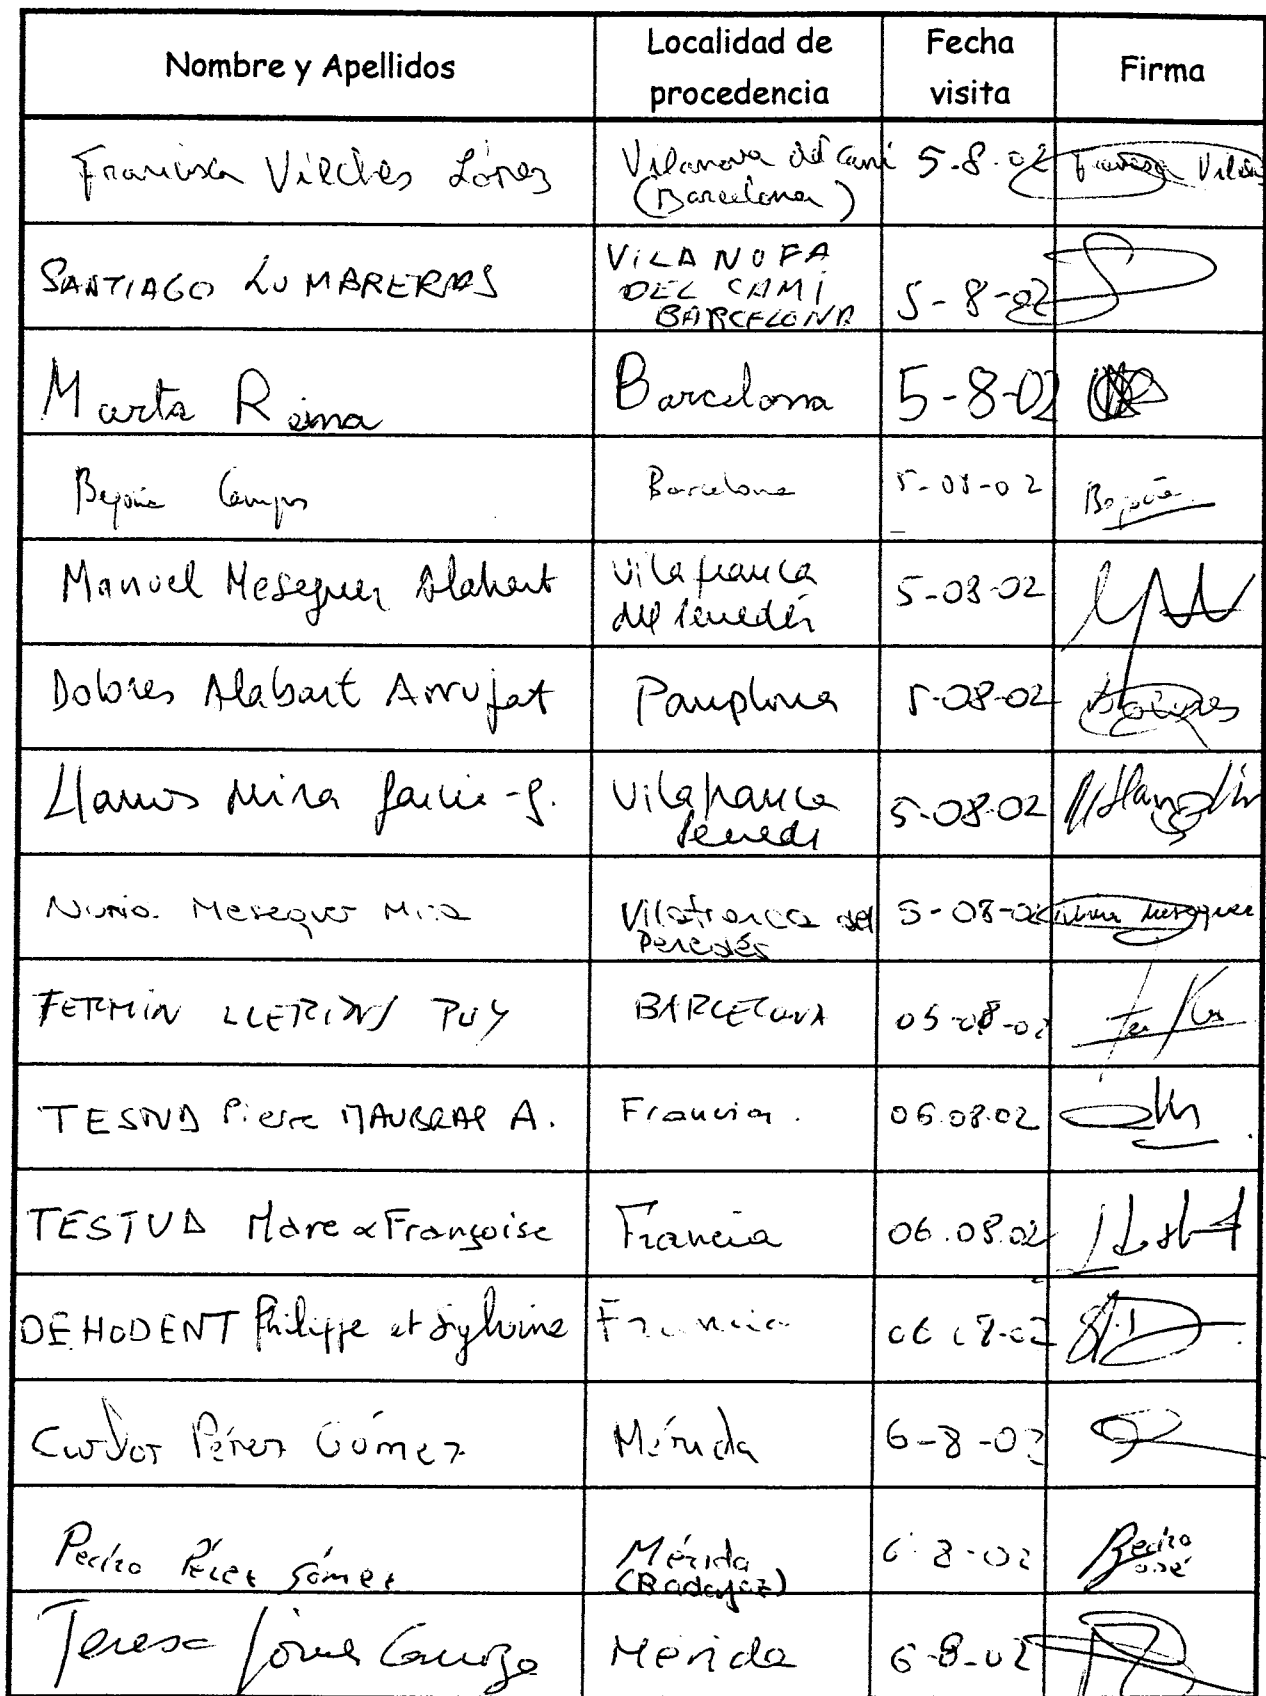 Nombre y Apellidos
Localidad de
procedencia
Fecha
visita
Firma
Francisca Vilches López
Vilanova del Camí
(Barcelona)
5-8-02
Francisca Vilches
SANTIAGO LUMARERAS
VILANOFA
DEL CAMI
BARCELONA
5-8-02
Marta Reina
Barcelona
5-8-02
Begoña Campos
Barcelona
5-08-02
Begoña
Manuel Meseguer Alabart
Vilafranca
del Penedés
5-08-02
Dolores Alabart Arrufat
Pamplona
5-08-02
Dolores
Llanos Mira García-G.
Vilafranca
Penedés
5-08-02
Nuria Meseguer Mira
Vilafranca del
Penedés
5-08-02
Nuria Meseguer
FERMIN PUY
BARCELONA
05-08-02
TESTUD Pierre A.
Francia.
06.08.02
TESTUD Françoise
Francia
06.08.02
DEHODENT Philippe et Sylvine
Francia
06 08-02
Carlos Pérez Gómez
Mérida
6-8-02
Pedro Pérez Gómez
Mérida
(Badajoz)
6-8-02
Pedro
José
Teresa Gómez
Mérida
6-8-02